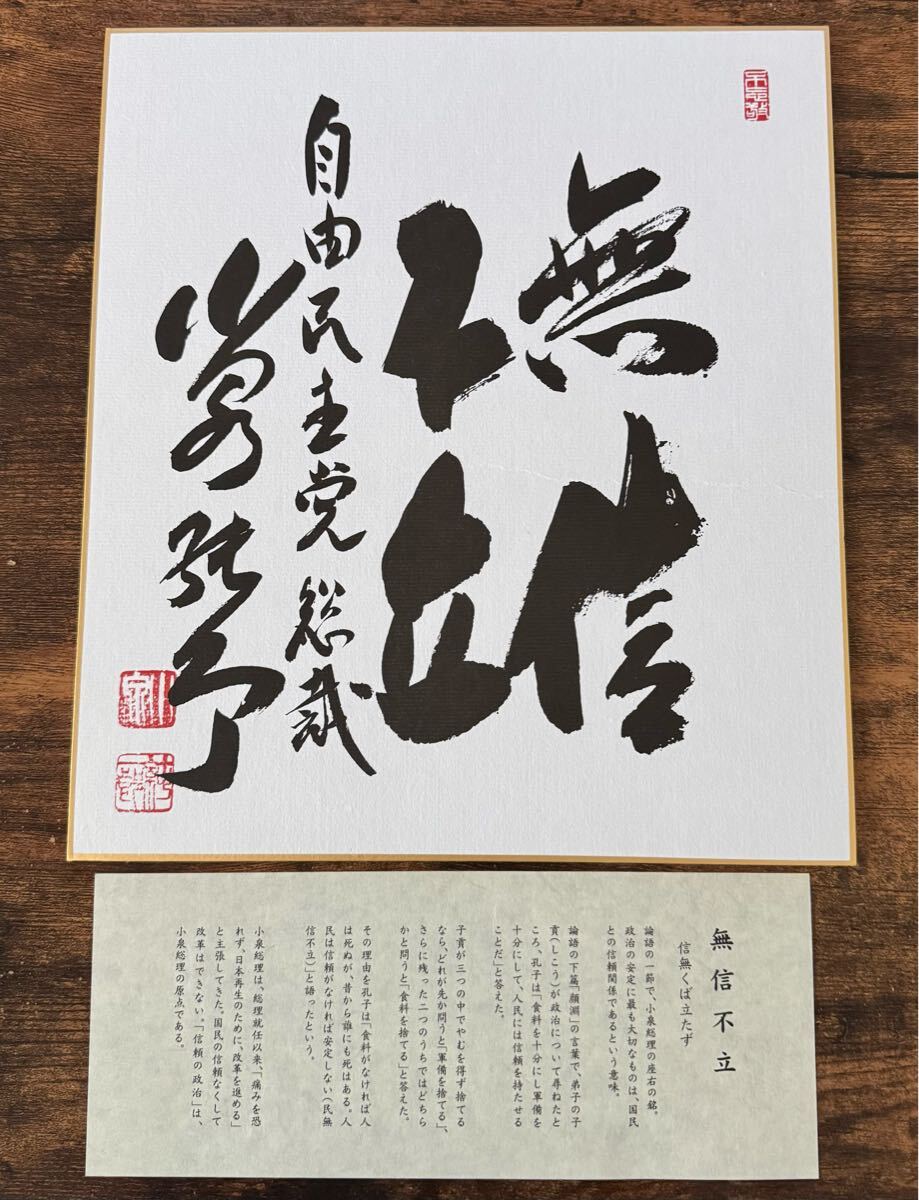 無信
不立
自由民主党 総裁
小泉純一郎
小泉
無信不立
信無くば立たず
論語の一節で、小泉総理の座右の銘。
政治の安定に最も大切なものは、国民
との信頼関係であるという意味。
論語の下篇「顔淵」の言葉で、弟子の子
貢(しこう)が政治について尋ねたと
ころ、孔子は「食料を十分にし軍備を
十分にして、人民には信頼を持たせる
ことだ」と答えた。
子貢が三つの中でやむを得ず捨てる
なら、どれが先か問うと「軍備を捨てる」、
さらに残った二つのうちではどちら
かと問うと「食料を捨てる」と答えた。
その理由を孔子は「食料がなければ人
は死ぬが、昔から誰にも死はある。人
民は信頼がなければ安定しない(民無
信不立)」と語ったという。
小泉総理は、総理就任以来、「痛みを恐
れず、日本再生のために、改革を進める」
と主張してきた。国民の信頼なくして
改革はできない。「信頼の政治」は、
小泉総理の原点である。